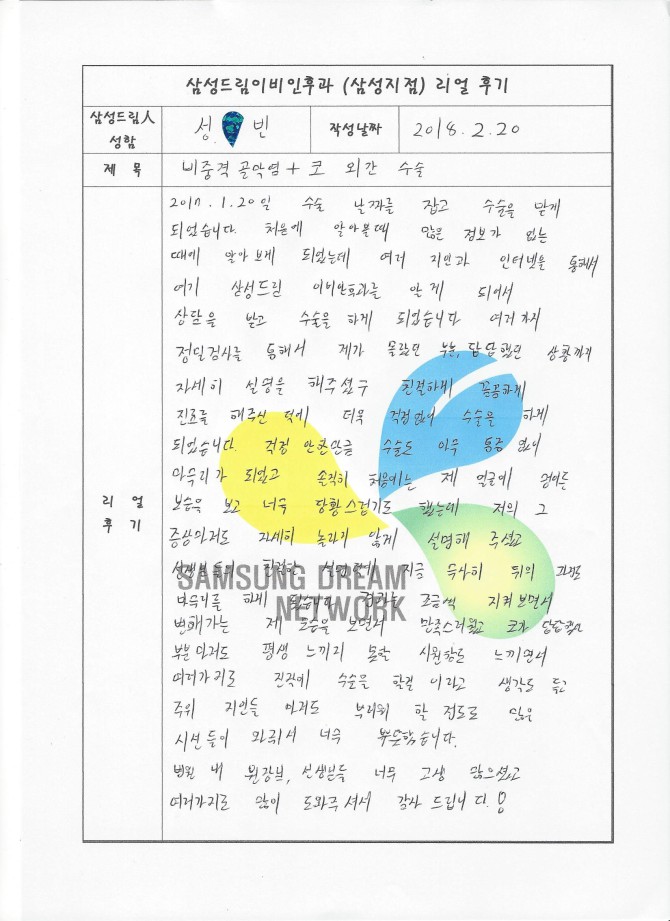 삼성드림이비인후과 (삼성지점) 리얼 후기
삼성드림人 성함
성 빈
작성날짜
2018. 2. 20
제 목
비중격 골악염 + 코 외간 수술
리 얼 후 기
2017. 1. 20일 수술 날짜를 잡고 수술을 받게
되었습니다. 처음에 알아볼때 많은 정보가 있는
때에 알아보게 되었는데 여러 지인과 인터넷을 통해서
여기 삼성드림 이비인후과를 알게 되어서
상담을 받고 수술을 하게 되었습니다 여러가지
정밀검사를 통해서 제가 몰랐던 부분, 답답했던 상황까지
자세히 설명을 해주셨구 친절하게 꼼꼼하게
진료를 해주신 덕에 더욱 걱정없이 수술을 하게
되었습니다. 걱정 안한만큼 수술도 아무 통증 없이
마무리가 되었고 솔직히 처음에는 제 얼굴에 멍이든
모습을 보고 너무 당황스럽기도 했는데 저의 그
증상마저도 자세히 놀라지 않게 설명해 주셨고
선생님들의 친절한 지금 무사히 뒤의
마무리를 하게 됐습니다 조금씩 지켜보면서
변해가는 제 모습을 보면서 만족스러웠고 코가 답답했던
부분마저도 평생 느끼지 못할 시원함도 느끼면서
여러가지로 진작에 수술을 할걸 이라고 생각도 들고
주위 지인들 마저도 부러워 할 정도로 많은
시선들이 와줘서 너무 뿌듯했습니다.
병원 내 원장님, 선생님들 너무 고생 많으셨고
여러가지로 많이 도와주셔서 감사 드립니다!
SAMSUNG DREAM
NETWORK